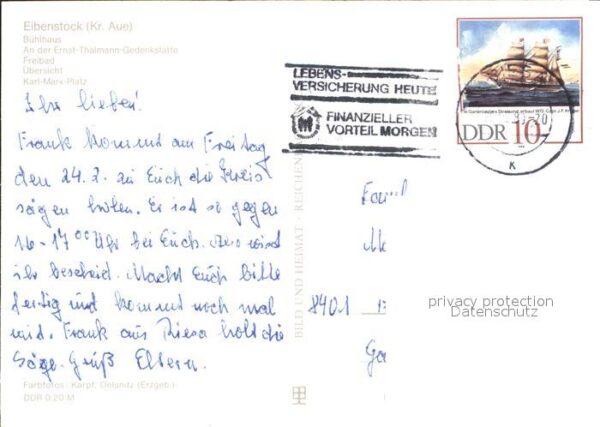 Eibenstock (Kr. Aue)
Bühlhaus
An der Ernst-Thälmann-Gedenkstätte
Freibad
Übersicht
Karl-Marx-Platz
Ihr lieben!
Frank kommt am Freitag
den 24.2. zu Euch die Kreis
sägen holen. Er ist so gegen
16-17 00 Uhr bei Euch. wißt
ihr bescheid. Macht Euch bitte
fertig und kommt noch mal
mit. Frank aus Riesa holt die
Säge. Gruß Eltern.
Farbfotos: Karpf, Oelsnitz (Erzgeb.)
DDR 0,20 M
BILD UND HEIMAT · REICHEN
LEBENS-
VERSICHERUNG HEUTE
FINANZIELLER
VORTEIL MORGEN
DDR 10
-20
K
Fam
8401
privacy protection
Datenschutz